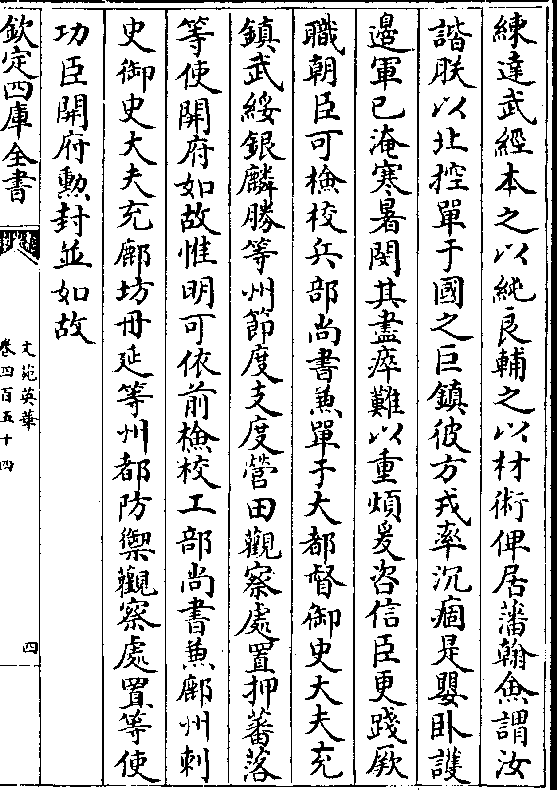 練達武經本之以純良輔之以材術俾居藩翰僉謂汝
諧朕以北控單于國之巨鎮彼方戎率沉痼是嬰卧護
邊軍已淹寒暑閔其盡瘁難以重煩爰咨信臣更踐厥
職朝臣可檢校兵部尚書兼單于大都督御史大夫充
鎮武綏銀麟勝等州節度支度營田觀察處置押蕃落
等使開府如故惟明可依前檢校工部尚書兼鄜州刺
史御史大夫充鄜坊丹延等州都防禦觀察處置等使
功臣開府勲封並如故
欽定四庫全書
文苑英華
卷四百五十四
四